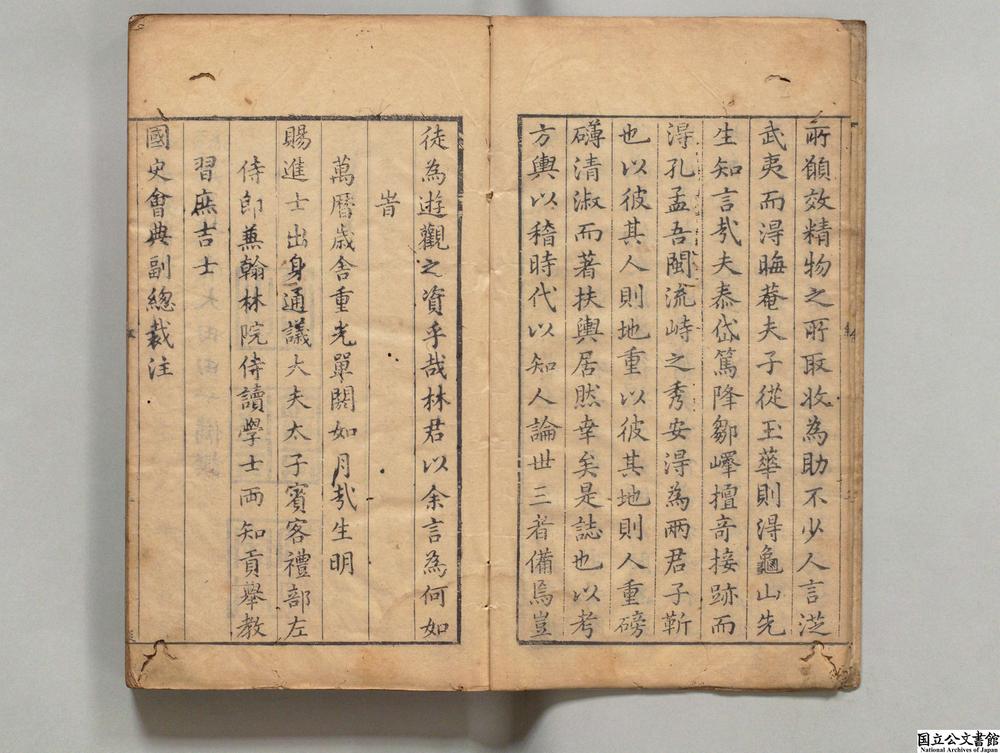 所願效精物之所取收為助不少人言從
武夷而得晦菴夫子從玉華則得龜山先
生知言哉夫泰岱篤降鄒嶧擅奇接跡而
淂孔孟吾閩流峙之秀安淂為兩君子靳
也以彼其人則地重以彼其地則人重磅
礴清淑而著扶輿居然幸矣是誌也以考
方輿以稽時代以知人論世三者備焉豈
徒為遊觀之資乎哉林君以余言為何如
旹
萬曆歳舍重光單閼如月哉生明
賜進士出身通議大夫太子賓客禮部左
侍郎兼翰林院侍讀學士兩知貢舉教
習庶吉士
國史會典副總裁注
国立公文書館
National Archives of Japan